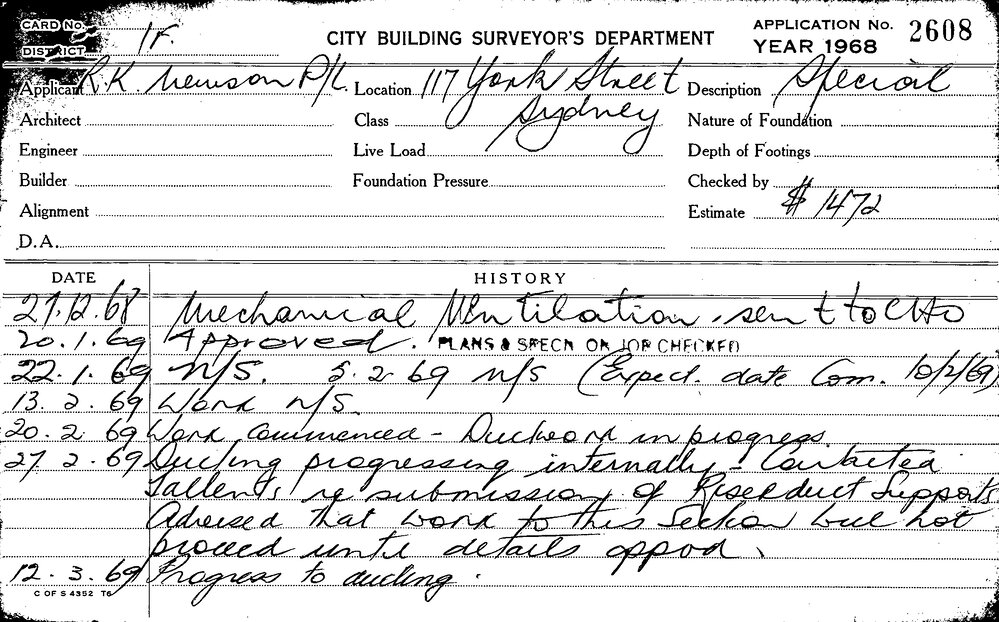 CARD No. 1F.
DISTRICT
CITY BUILDING SURVEYOR'S DEPARTMENT
APPLICATION No. 2608
YEAR 1968
Applicant R.K. Newson P/L. Location 117 York Street Description Special
Architect Class Sydney Nature of Foundation
Engineer Live Load Depth of Footings
Builder Foundation Pressure Checked by
Alignment Estimate $ 1472
D.A.
DATE HISTORY
27.12.68 Mechanical Ventilation, sent to CHO
20.1.69 Approved. PLANS & SPECN ON JOB CHECKED
22.1.69 N/S. 5.2.69 N/S (Expect. date Com. 10/2/69)
13.2.69 Work N/S.
20.2.69 Work commenced - Ductwork in progress.
27.2.69 Ducting progressing internally - Contacted
re submission of Riserduct Supports.
Advised that work to this Section but not
proceed until details approd.
12.3.69 Progress to ducting.
C OF S 4352 T6